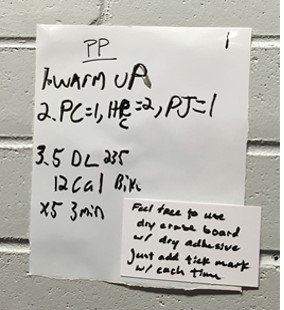 PP
1
1. WARM UP
2. PC=1, HPC=2, PJ=1
3. 5 DL 235
12 Cal Bike
X5 3 min
Feel free to use
dry erase board
w/ dry adhesive
just add tick mark
w/ each time